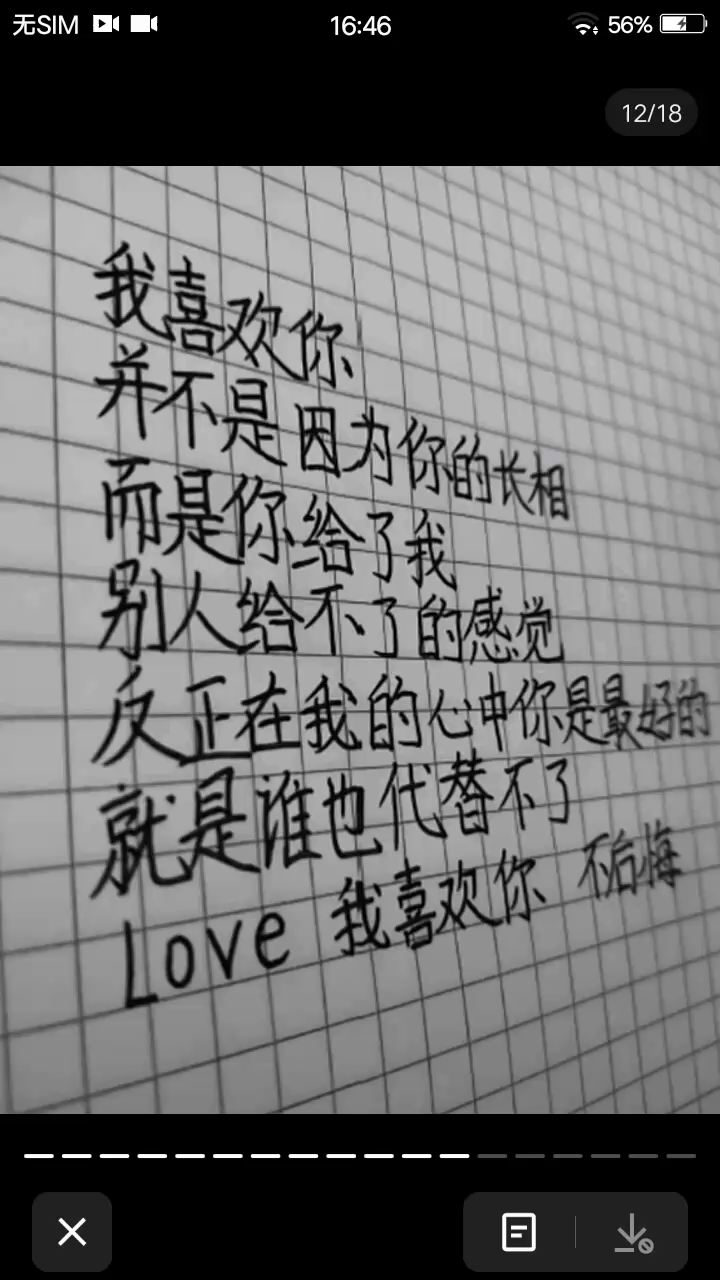 无SIM 16:46 56%
12/18
我喜欢你
并不是因为你的长相
而是你给了我
别人给不了的感觉
反正在我的心中你是最好的
就是谁也代替不了
Love 我喜欢你 不后悔